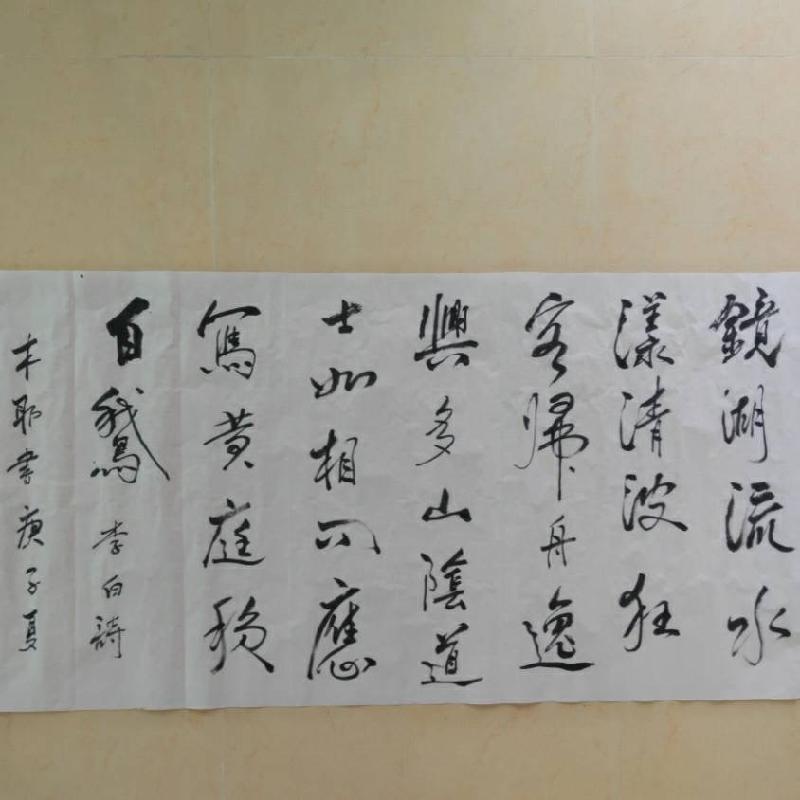 鏡湖流水
漾清波狂
客歸舟逸
興多山陰道
士如相问應
寫黄庭
自鵝 李白詩
本耶書庚子夏